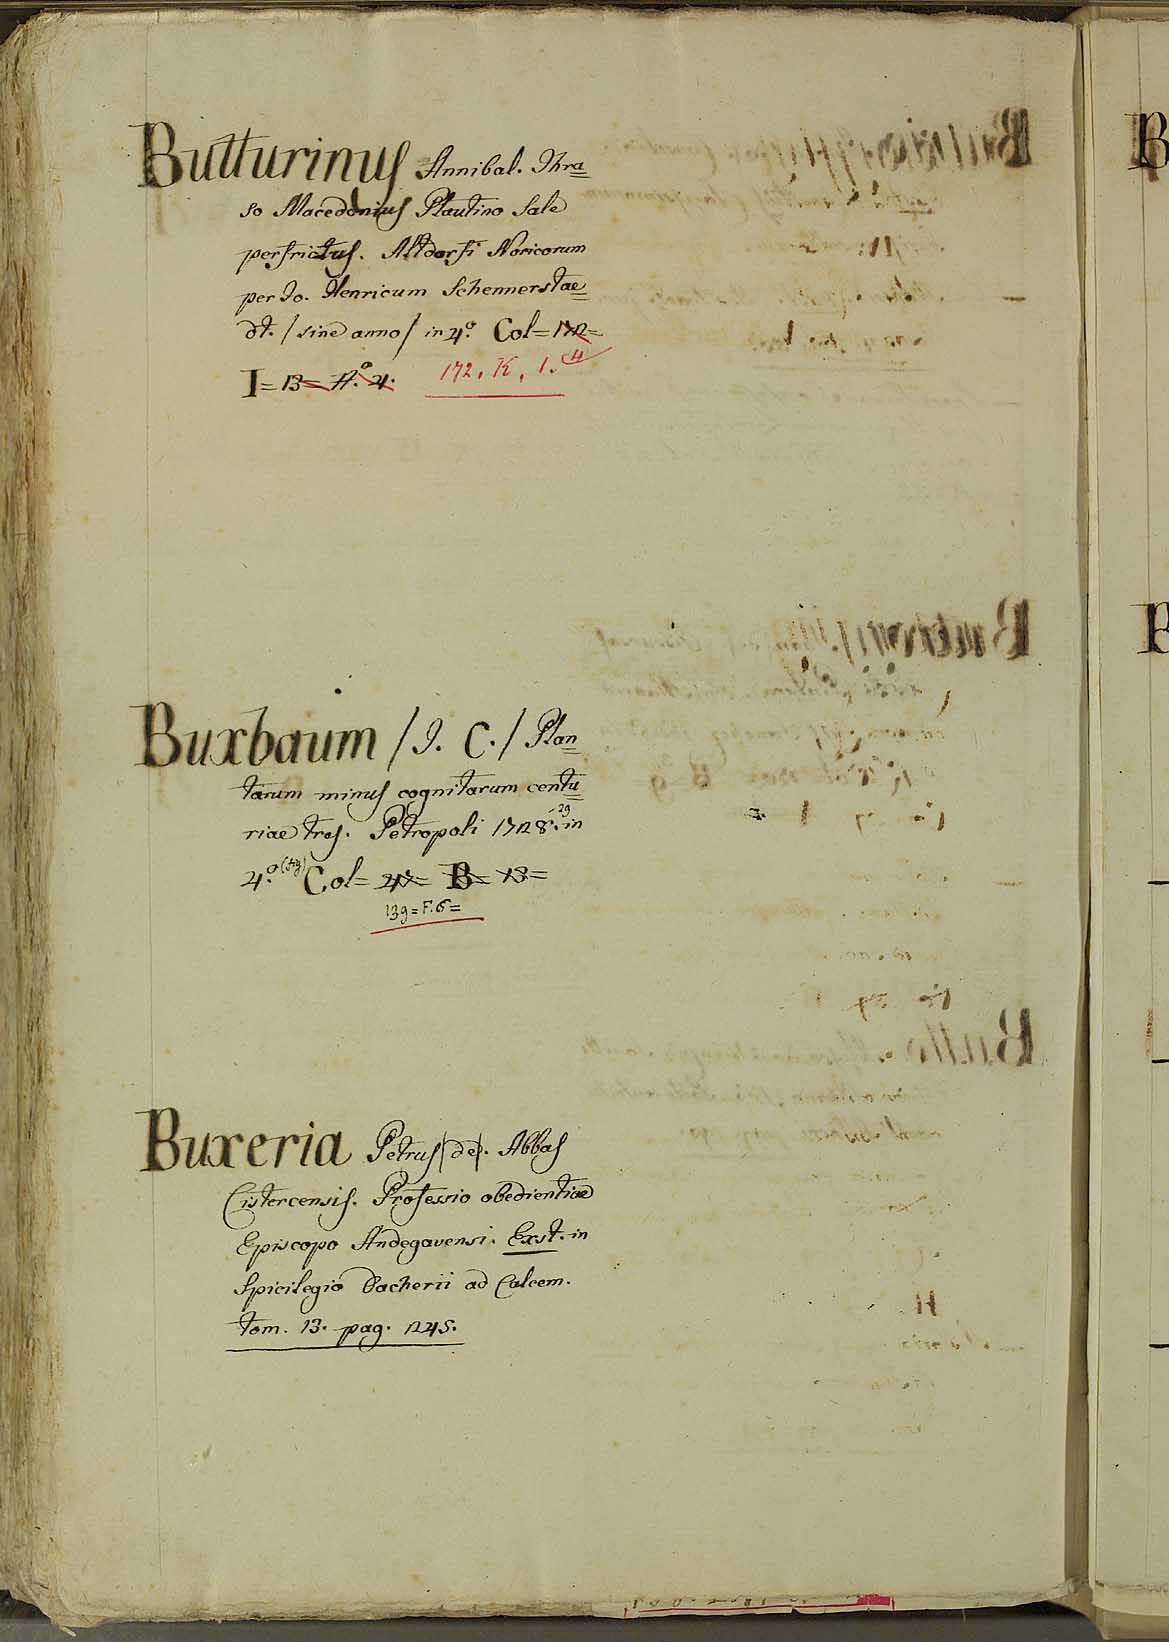 Butturinus Annibal. Thra=
so Macedonius Plautino Sale
perfrictus. Altdorfi Noricorum
per Jo. Henricum Schennerstae=
dt. / sine anno / in 4.o Col=172=
I=13= A.o 4. 172. K. 1.
Buxbaum / J. C. / Plan=
tarum minus cognitarum centu=
riae tres. Petropoli 1728. 29 in
4.o (fig) Col= B= 13=
139=F.6=
Buxeria Petrus /de/. Abbas
Cistercensis. Professio obedientiae
Episcopo Andegavensi. Exst. in
Spicilegio Dacherii ad Calcem.
tom. 13. pag. 1245.